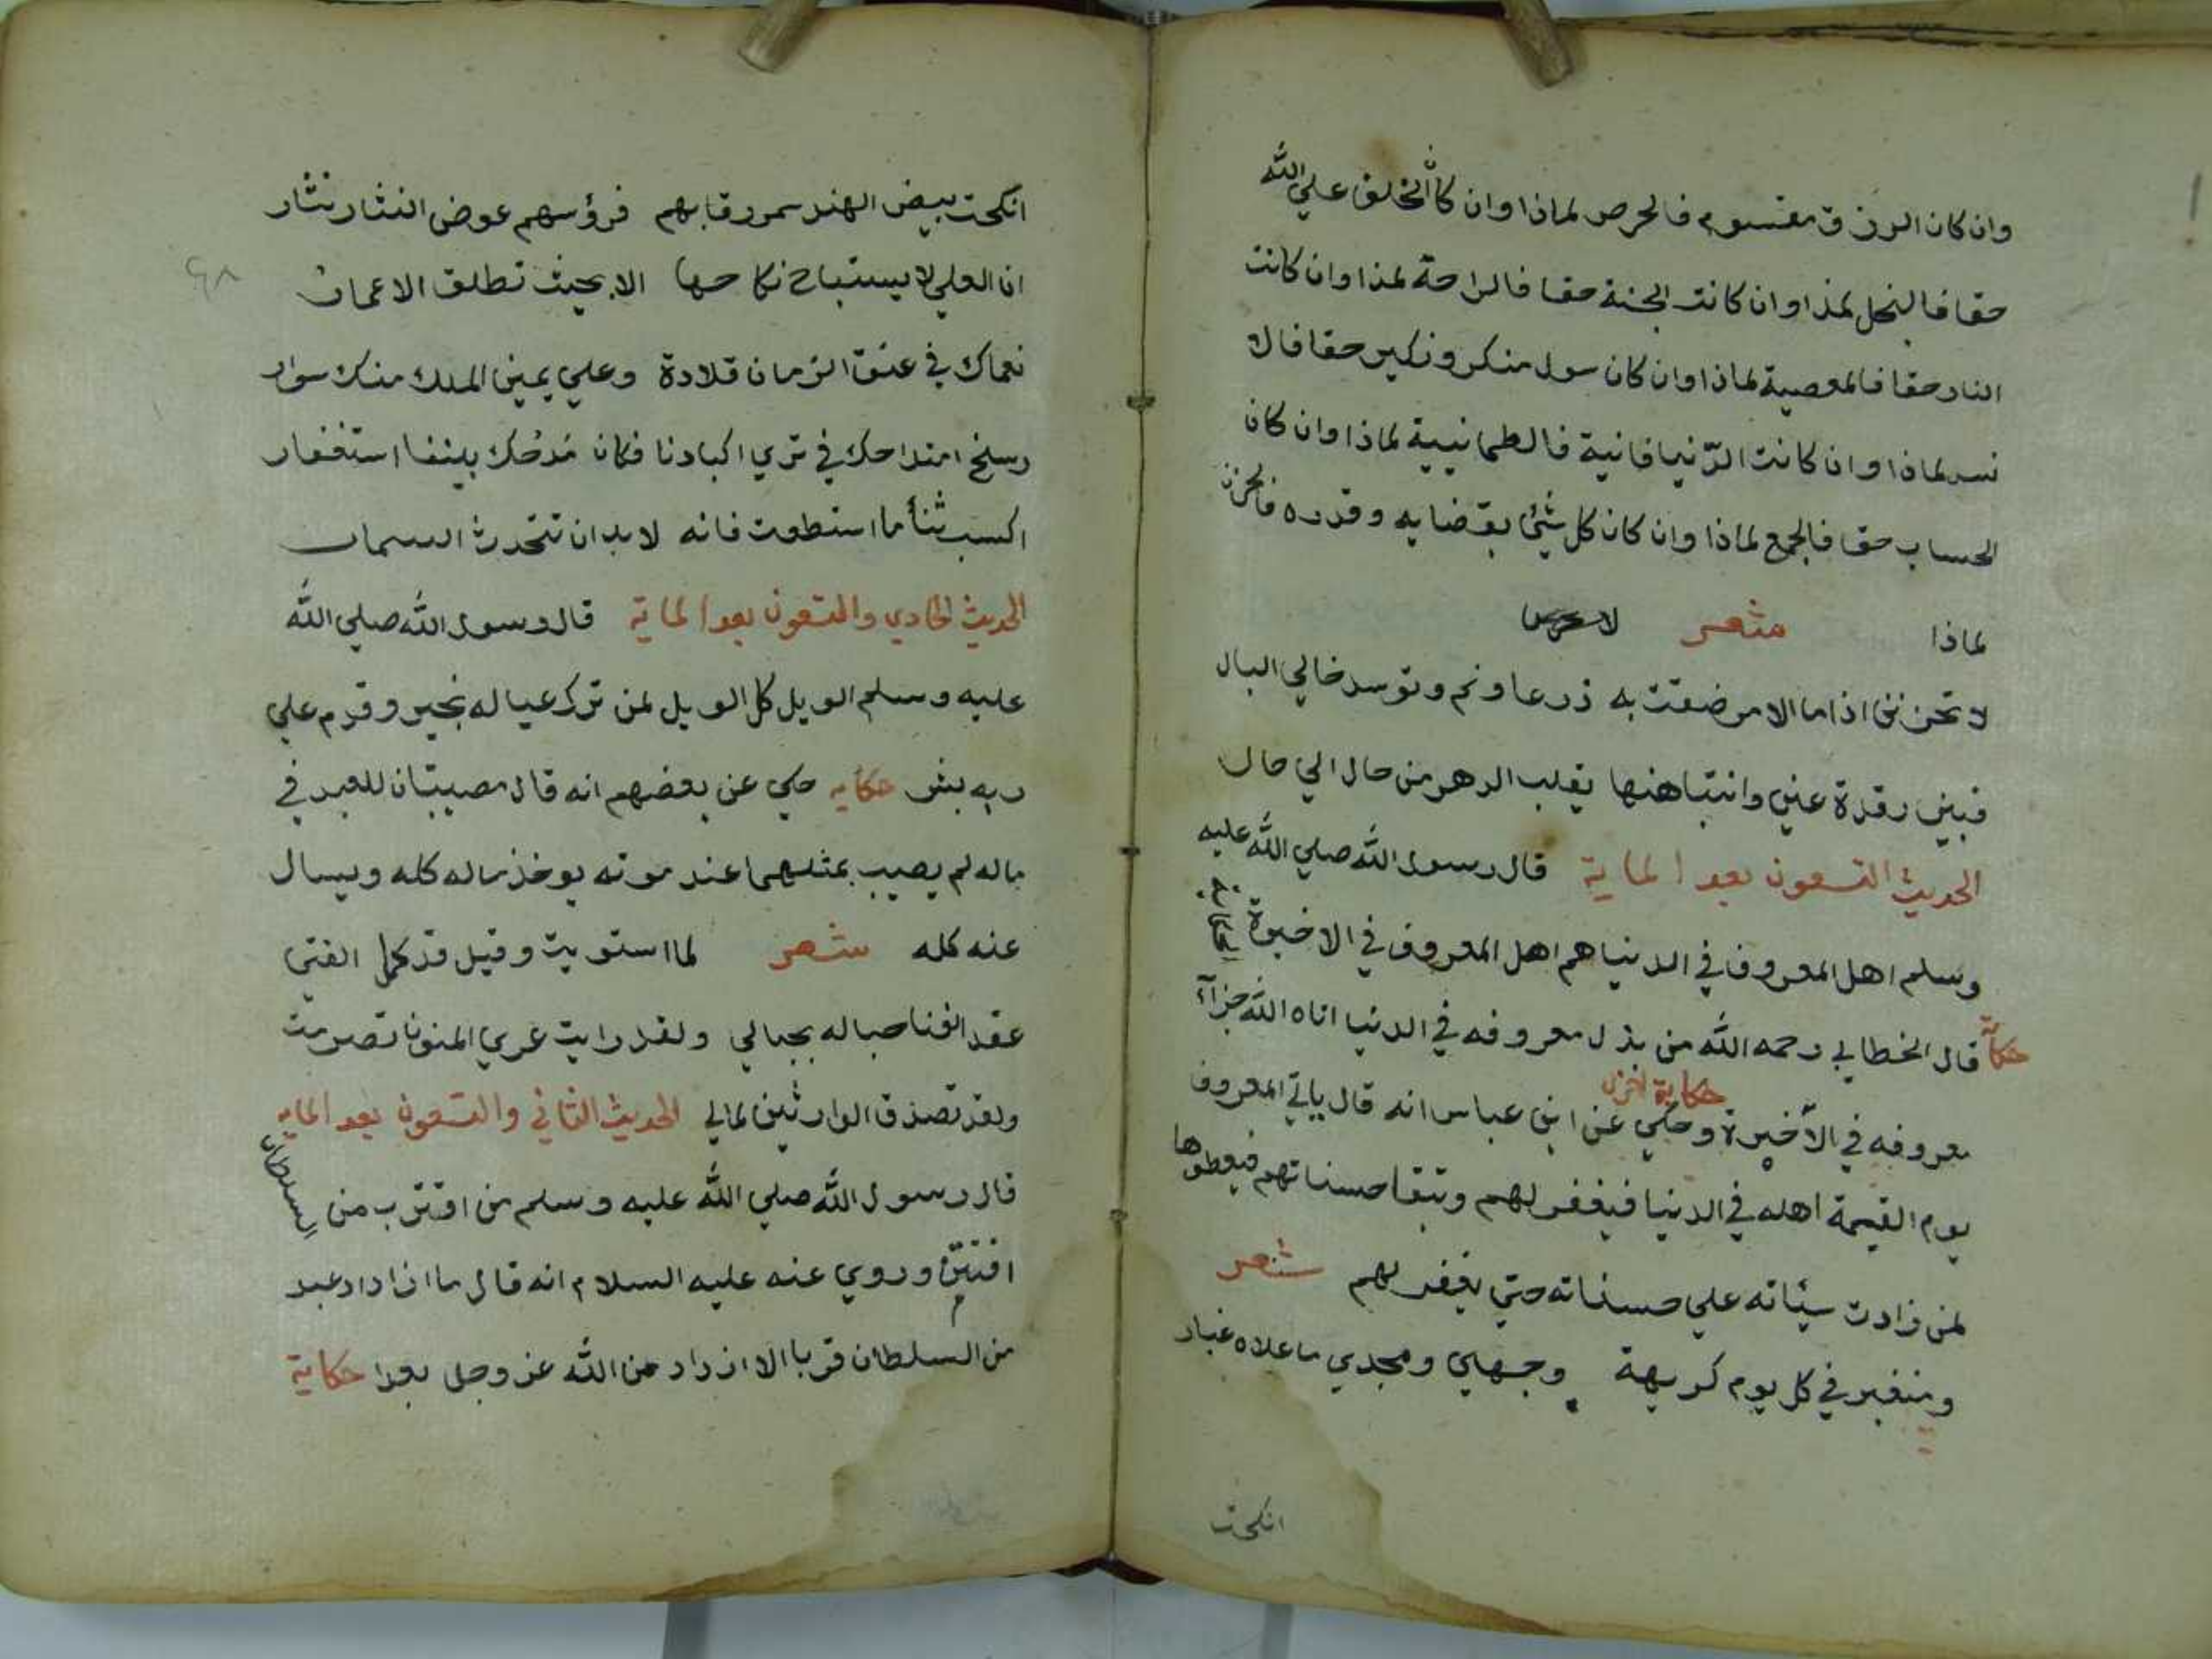 وان كان الرزق مقسوم فالحرص لماذا وان كان الخلف علي الله
حقا فالبخل لمذا وان كانت الجنة حقا فالراحة لمذا وان كانت
النار حقا فالمعصية لماذا وان كان سول منكر ونكير حقا فالا
نس لماذا وان كانت الدّنيا فانية فالطمانيية لماذا وان كان
الحساب حقا فالجمع لماذا وان كان كل شئ بقضايه وقدره فالحزن
لماذا شعر
لا تحزنن اذا ما الامر ضقت به ذرعا ونم وتوسد خالي البال
فبين رقدة عين وانتباهنها يقلب الدهر من حال الي حال
الحديث التسعون بعد الماية قال رسول الله صلي الله عليه
وسلم اهل المعروف في الدنيا هم اهل المعروف في الاخيرة
حكاية قال الخطابي رحمه الله من بذل معروفه في الدنيا اتاه الله جزآء
حكاية اخري
معروفه في الآخيرة وحكي عن ابن عباس انه قال ياتي المعروف
يوم القيمة اهله في الدنيا فيغفر لهم وتبقا حسناتهم فيعطوها
لمن زادت سئاته علي حسناته حتي يغفر لهم شعر
ومنغبر في كل يوم كريهة وجهي ومجدي ما علاه غبار
انكحت
٤٨
انكحت بيض الهند سمر رقابهم فرؤسهم عوض النثار نثار
ان العلي لا يستباح نكاحها الا بحيث تطلق الاعمار
نعماك في عنق الزمان قلادة وعلي يمين الملك منك سوار
رسخ امتداحك في تري اكبادنا فكان مدحك بيننا استغفار
اكسب ثنأ ما استطعت فانه لا بد ان تتحدث السمار
الحديث الحادي والتسعون بعد الماية قال رسول الله صلي الله
عليه وسلم الويل كل الويل لمن ترك عياله بخير وقدم علي
ربه بشر حكايه حكي عن بعضهم انه قال مصيبتان للعبد في
ماله لم يصيب بمثلهما عند موته يوخذ ماله كله ويسال
عنه كله شعر لما استويت وقيل قد كمل الفتي
عقد الفنا حباله بحبالي ولقد رايت عري المنون تصرمت
ولقد تصدق الوارثين لمالي الحديث الثاني والتسعون بعد المايه
قال رسول الله صلي الله عليه وسلم من اقترب من السلطان
افتتن وروي عنه عليه السلام انه قال ما ازداد عبد
من السلطان قربا الا ازداد من الله عز وجل بعدا حكاية